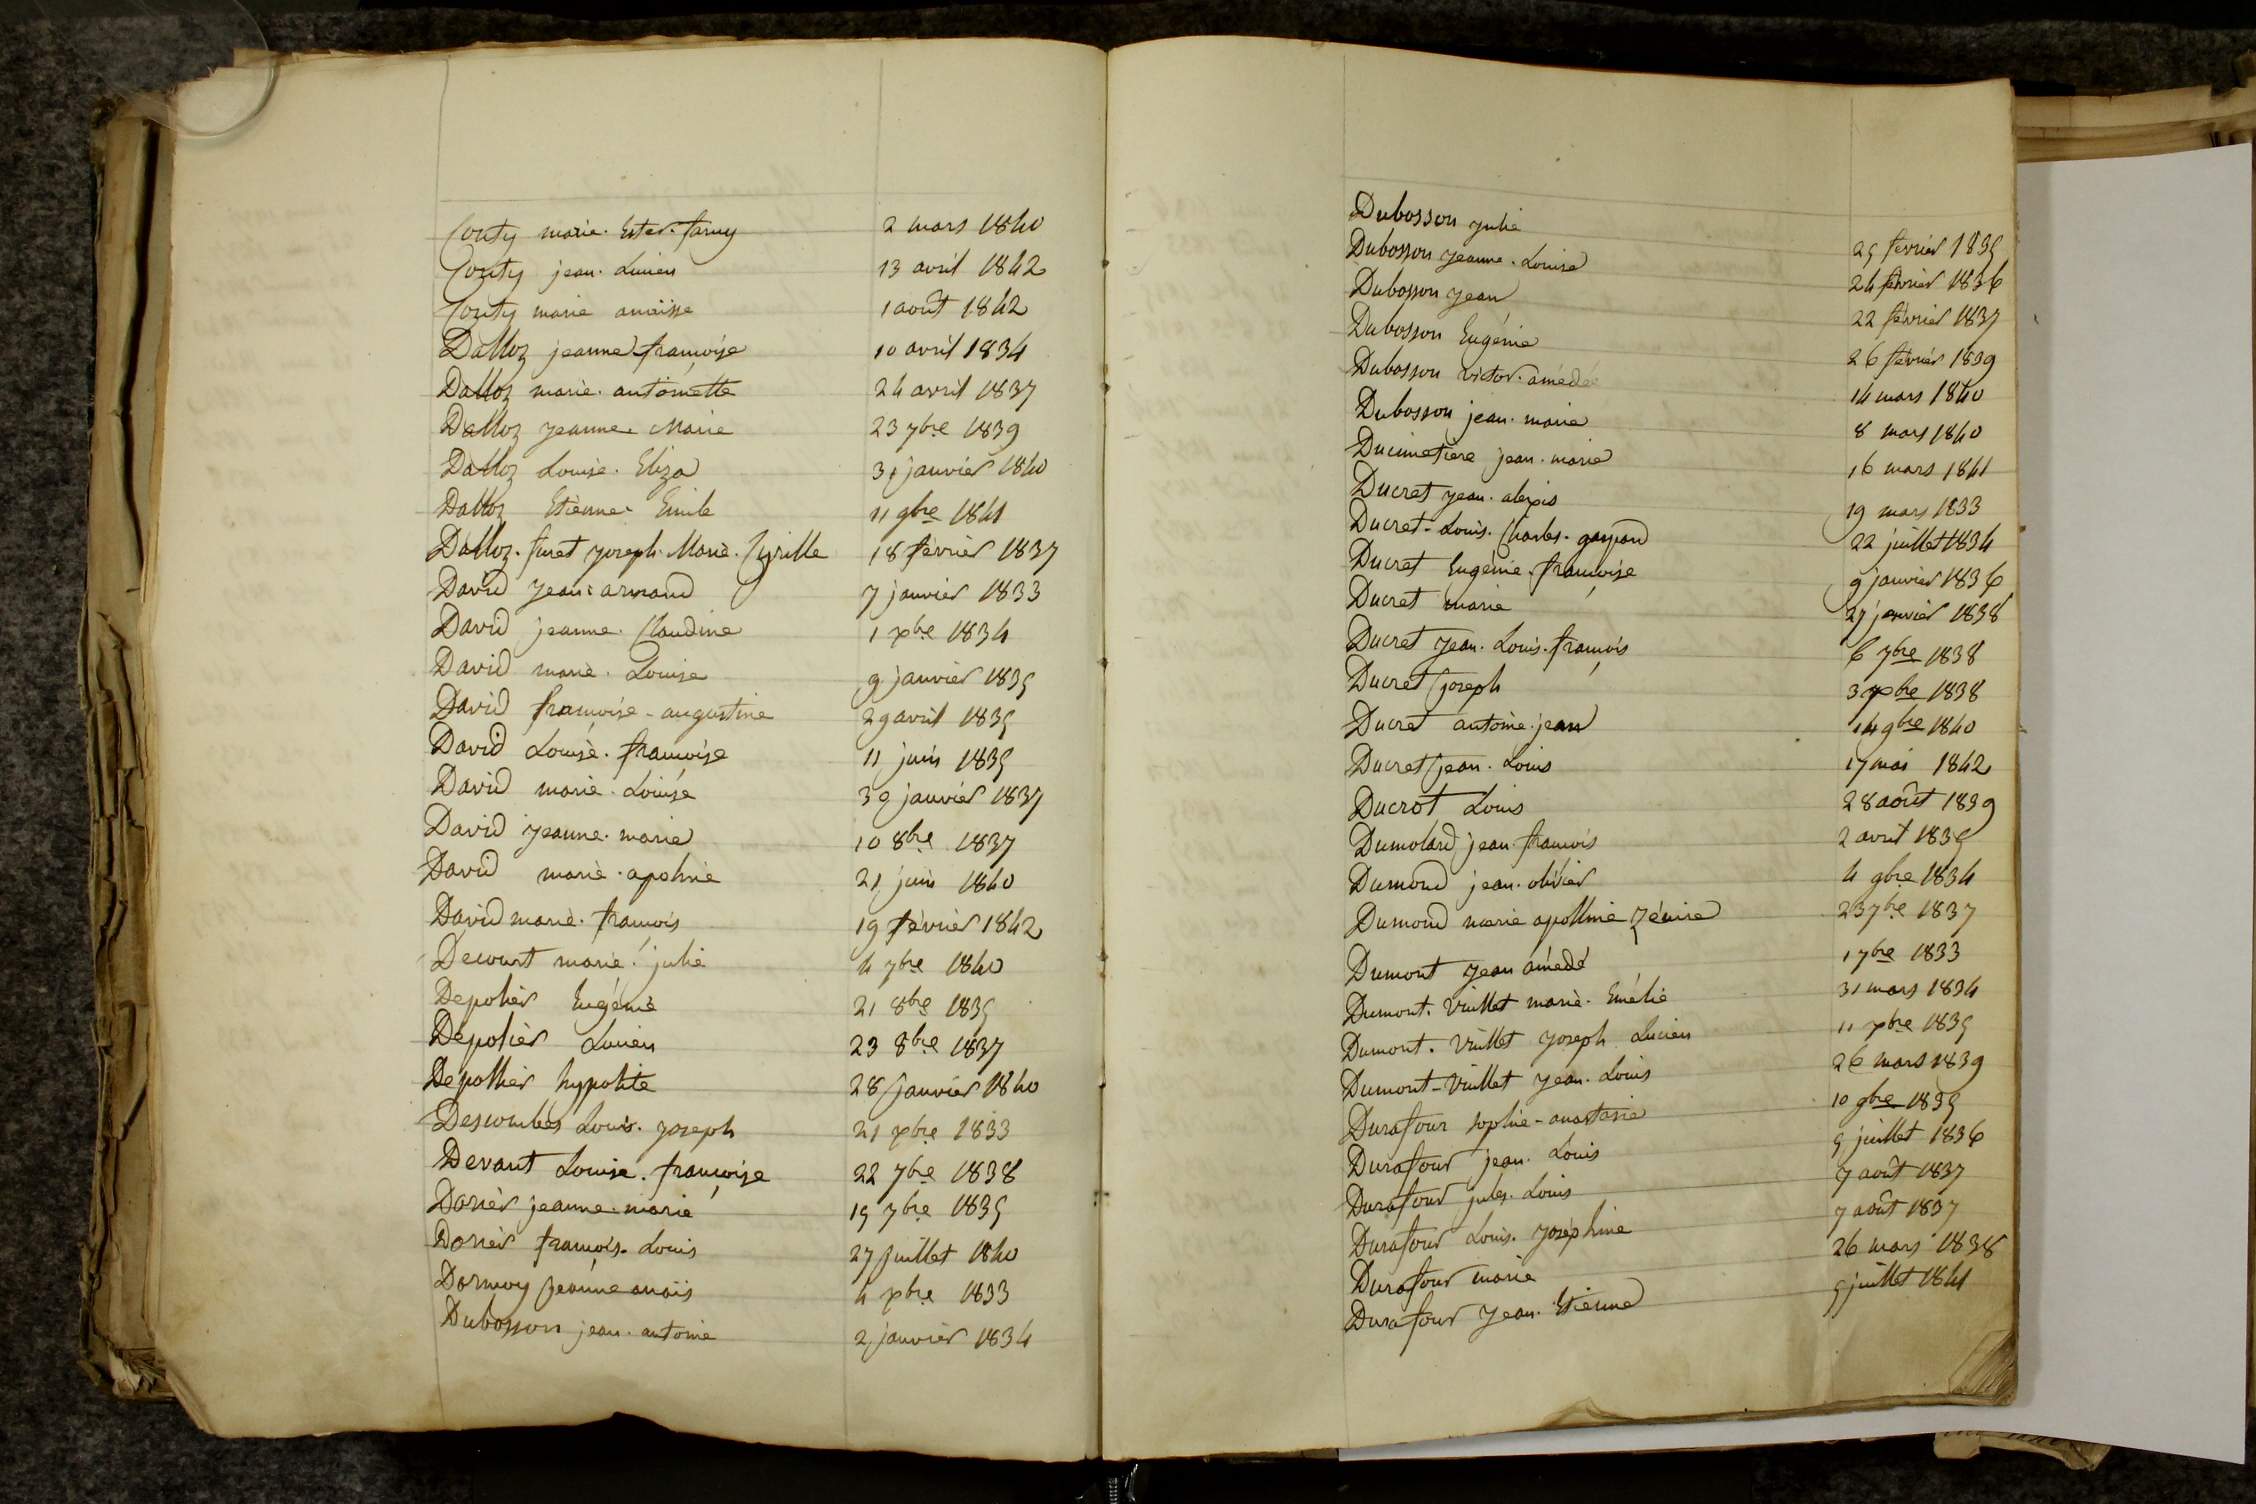 Couty marie. Ester. fanny 2 mars 1840
Couty jean. Lucien 13 avril 1842
Couty marie anaïsse 1 août 1842
Dalloz jeanne françoise 10 avril 1834
Dalloz marie. antoinette 24 avril 1837
Dalloz jeanne. Marie 23 7bre 1839
Dalloz Louise. Eliza 31 janvier 1840
Dalloz Etienne. Emile 11 9bre 1841
Dalloz. furet joseph. Marie. Cyrille 18 février 1837
David jean. armand 7 janvier 1833
David jeanne. Claudine 1 xbre 1834
David marie. Louise 9 janvier 1835
David françoise - augustine 29 avril 1835
David Louise. françoise 11 juin 1835
David marie. Louise 30 janvier 1837
David jeanne. marie 10 8bre 1837
David marie. apoline 21 juin 1840
David marie. françois 19 février 1842
Decourt marie. julie 4 7bre 1840
Depolier Eugénie 21 8bre 1835
Depolier Lucien 23 8bre 1837
Depollier hypolite 28 janvier 1840
Descombes Louis. joseph 21 xbre 1833
Devant Louise. françoise 22 7bre 1838
Dorier jeanne. marie 15 7bre 1835
Dorier françois. Louis 27 juillet 1840
Dormoy jeanne anaïs 4 xbre 1833
Dubosson jean. antoine 2 janvier 1834
Dubosson julie 25 février 1835
Dubosson jeanne. Louise 24 février 1836
Dubosson jean 22 février 1837
Dubosson Eugénie 26 février 1839
Dubosson victor. amédée 14 mars 1840
Dubosson jean. marie 8 mars 1840
Ducimetière jean. marie 16 mars 1841
Ducret jean. alexis 19 mars 1833
Ducret - Louis. Charles. gaspard 22 juillet 1834
Ducret Eugénie. françoise 9 janvier 1836
Ducret marie 27 janvier 1838
Ducret jean. Louis. françois 6 7bre 1838
Ducret joseph 3 xbre 1838
Ducret antoine. jean 14 9bre 1840
Ducret jean. Louis 17 mai 1842
Ducrot Louis 28 août 1839
Dumolard jean françois 2 avril 1835
Dumond jean. olivier 4 9bre 1834
Dumond marie apolline Zénise 23 7bre 1837
Dumont jean amédé 1 7bre 1833
Dumont. Vuillet marie. Emélie 31 mars 1834
Dumont. Vuillet joseph Lucien 11 xbre 1835
Dumont - Vuillet jean. Louis 26 mars 1839
Durafour sophie - anastasie 10 9bre 1835
Durafour jean. Louis 5 juillet 1836
Durafour jules. Louis 7 août 1837
Durafour Louis. joséphine 7 août 1837
Durafour marie 26 mars 1838
Durafour jean. Etienne 5 juillet 1841